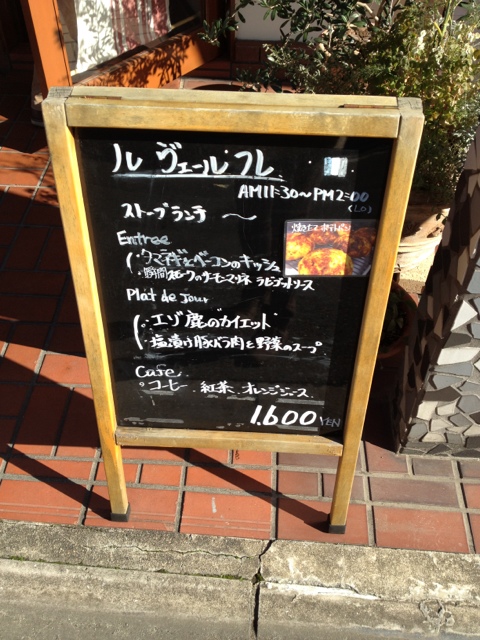 ル ヴェールフレ
AM11:30～PM2:00
(L.O)
ストーブランチ ～
Entree
・タマネギとベーコンのキッシュ
・瞬間スモークのサーモンマリネ ラビゴットソース
Plat de Jour
・エゾ鹿のカイエット
・塩漬け豚バラ肉と野菜のスープ
Cafe
・コーヒー、紅茶、オレンジジュース
1.600 YEN